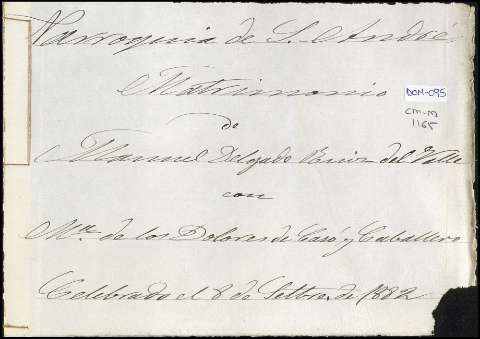 Parroquia de S. Andrés
Matrimonio
DOM-095
CM-M
1165
de
Manuel Delgado del Valle
con
Mª de los Dolores de Casó y Caballero
Celebrado el 8 de Setbre. de 1882